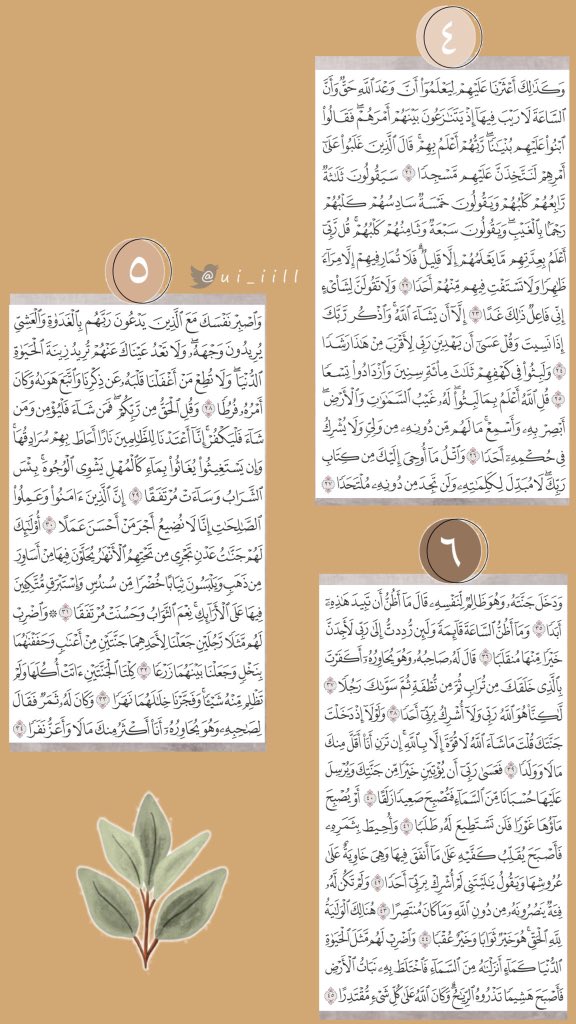 ٤
وَكَذَٰلِكَ أَعْثَرْنَا عَلَيْهِمْ لِيَعْلَمُوٓا۟ أَنَّ وَعْدَ ٱللَّهِ حَقٌّ وَأَنَّ
ٱلسَّاعَةَ لَا رَيْبَ فِيهَآ إِذْ يَتَنَٰزَعُونَ بَيْنَهُمْ أَمْرَهُمْ ۖ فَقَالُوا۟
ٱبْنُوا۟ عَلَيْهِم بُنْيَٰنًا ۖ رَّبُّهُمْ أَعْلَمُ بِهِمْ ۚ قَالَ ٱلَّذِينَ غَلَبُوا۟ عَلَىٰٓ
أَمْرِهِمْ لَنَتَّخِذَنَّ عَلَيْهِم مَّسْجِدًا ٢١ سَيَقُولُونَ ثَلَٰثَةٌ
رَّابِعُهُمْ كَلْبُهُمْ وَيَقُولُونَ خَمْسَةٌ سَادِسُهُمْ كَلْبُهُمْ
رَجْمًۢا بِٱلْغَيْبِ ۖ وَيَقُولُونَ سَبْعَةٌ وَثَامِنُهُمْ كَلْبُهُمْ ۚ قُل رَّبِّىٓ
أَعْلَمُ بِعِدَّتِهِم مَّا يَعْلَمُهُمْ إِلَّا قَلِيلٌ ۗ فَلَا تُمَارِ فِيهِمْ إِلَّا مِرَآءً
ظَٰهِرًا وَلَا تَسْتَفْتِ فِيهِم مِّنْهُمْ أَحَدًا ٢٢ وَلَا تَقُولَنَّ لِشَا۟ىْءٍ
إِنِّى فَاعِلٌ ذَٰلِكَ غَدًا ٢٣ إِلَّآ أَن يَشَآءَ ٱللَّهُ ۚ وَٱذْكُر رَّبَّكَ
إِذَا نَسِيتَ وَقُلْ عَسَىٰٓ أَن يَهْدِيَنِ رَبِّى لِأَقْرَبَ مِنْ هَٰذَا رَشَدًا
٢٤ وَلَبِثُوا۟ فِى كَهْفِهِمْ ثَلَٰثَ مِا۟ئَةٍ سِنِينَ وَٱزْدَادُوا۟ تِسْعًا
٢٥ قُلِ ٱللَّهُ أَعْلَمُ بِمَا لَبِثُوا۟ ۖ لَهُۥ غَيْبُ ٱلسَّمَٰوَٰتِ وَٱلْأَرْضِ ۖ
أَبْصِرْ بِهِۦ وَأَسْمِعْ ۚ مَا لَهُم مِّن دُونِهِۦ مِن وَلِىٍّ وَلَا يُشْرِكُ
فِى حُكْمِهِۦٓ أَحَدًا ٢٦ وَٱتْلُ مَآ أُوحِىَ إِلَيْكَ مِن كِتَابِ
رَبِّكَ ۖ لَا مُبَدِّلَ لِكَلِمَٰتِهِۦ وَلَن تَجِدَ مِن دُونِهِۦ مُلْتَحَدًا ٢٧
٥
@ui_iill
وَٱصْبِرْ نَفْسَكَ مَعَ ٱلَّذِينَ يَدْعُونَ رَبَّهُم بِٱلْغَدَوٰةِ وَٱلْعَشِىِّ
يُرِيدُونَ وَجْهَهُۥ ۖ وَلَا تَعْدُ عَيْنَاكَ عَنْهُمْ تُرِيدُ زِينَةَ ٱلْحَيَوٰةِ
ٱلدُّنْيَا ۖ وَلَا تُطِعْ مَنْ أَغْفَلْنَا قَلْبَهُۥ عَن ذِكْرِنَا وَٱتَّبَعَ هَوَىٰهُ وَكَانَ
أَمْرُهُۥ فُرُطًا ٢٨ وَقُلِ ٱلْحَقُّ مِن رَّبِّكُمْ ۖ فَمَن شَآءَ فَلْيُؤْمِن وَمَن
شَآءَ فَلْيَكْفُرْ ۚ إِنَّآ أَعْتَدْنَا لِلظَّٰلِمِينَ نَارًا أَحَاطَ بِهِمْ سُرَادِقُهَا ۚ
وَإِن يَسْتَغِيثُوا۟ يُغَاثُوا۟ بِمَآءٍ كَٱلْمُهْلِ يَشْوِى ٱلْوُجُوهَ ۚ بِئْسَ
ٱلشَّرَابُ وَسَآءَتْ مُرْتَفَقًا ٢٩ إِنَّ ٱلَّذِينَ ءَامَنُوا۟ وَعَمِلُوا۟
ٱلصَّٰلِحَٰتِ إِنَّا لَا نُضِيعُ أَجْرَ مَنْ أَحْسَنَ عَمَلًا ٣٠ أُو۟لَٰٓئِكَ
لَهُمْ جَنَّٰتُ عَدْنٍ تَجْرِى مِن تَحْتِهِمُ ٱلْأَنْهَٰرُ يُحَلَّوْنَ فِيهَا مِنْ أَسَاوِرَ
مِن ذَهَبٍ وَيَلْبَسُونَ ثِيَابًا خُضْرًا مِّن سُندُسٍ وَإِسْتَبْرَقٍ مُّتَّكِـِٔينَ
فِيهَا عَلَى ٱلْأَرَآئِكِ ۚ نِعْمَ ٱلثَّوَابُ وَحَسُنَتْ مُرْتَفَقًا ٣١ ۞ وَٱضْرِبْ
لَهُم مَّثَلًا رَّجُلَيْنِ جَعَلْنَا لِأَحَدِهِمَا جَنَّتَيْنِ مِنْ أَعْنَٰبٍ وَحَفَفْنَٰهُمَا
بِنَخْلٍ وَجَعَلْنَا بَيْنَهُمَا زَرْعًا ٣٢ كِلْتَا ٱلْجَنَّتَيْنِ ءَاتَتْ أُكُلَهَا وَلَمْ
تَظْلِم مِّنْهُ شَيْـًٔا ۚ وَفَجَّرْنَا خِلَٰلَهُمَا نَهَرًا ٣٣ وَكَانَ لَهُۥ ثَمَرٌ فَقَالَ
لِصَٰحِبِهِۦ وَهُوَ يُحَاوِرُهُۥٓ أَنَا۠ أَكْثَرُ مِنكَ مَالًا وَأَعَزُّ نَفَرًا ٣٤
٦
وَدَخَلَ جَنَّتَهُۥ وَهُوَ ظَالِمٌ لِّنَفْسِهِۦ قَالَ مَآ أَظُنُّ أَن تَبِيدَ هَٰذِهِۦٓ
أَبَدًا ٣٥ وَمَآ أَظُنُّ ٱلسَّاعَةَ قَآئِمَةً وَلَئِن رُّدِدتُّ إِلَىٰ رَبِّى لَأَجِدَنَّ
خَيْرًا مِّنْهَا مُنقَلَبًا ٣٦ قَالَ لَهُۥ صَاحِبُهُۥ وَهُوَ يُحَاوِرُهُۥٓ أَكَفَرْتَ
بِٱلَّذِى خَلَقَكَ مِن تُرَابٍ ثُمَّ مِن نُّطْفَةٍ ثُمَّ سَوَّىٰكَ رَجُلًا ٣٧
لَّٰكِنَّا۠ هُوَ ٱللَّهُ رَبِّى وَلَآ أُشْرِكُ بِرَبِّىٓ أَحَدًا ٣٨ وَلَوْلَآ إِذْ دَخَلْتَ
جَنَّتَكَ قُلْتَ مَا شَآءَ ٱللَّهُ لَا قُوَّةَ إِلَّا بِٱللَّهِ ۚ إِن تَرَنِ أَنَا۠ أَقَلَّ مِنكَ
مَالًا وَوَلَدًا ٣٩ فَعَسَىٰ رَبِّىٓ أَن يُؤْتِيَنِ خَيْرًا مِّن جَنَّتِكَ وَيُرْسِلَ
عَلَيْهَا حُسْبَانًا مِّنَ ٱلسَّمَآءِ فَتُصْبِحَ صَعِيدًا زَلَقًا ٤٠ أَوْ يُصْبِحَ
مَآؤُهَا غَوْرًا فَلَن تَسْتَطِيعَ لَهُۥ طَلَبًا ٤١ وَأُحِيطَ بِثَمَرِهِۦ
فَأَصْبَحَ يُقَلِّبُ كَفَّيْهِ عَلَىٰ مَآ أَنفَقَ فِيهَا وَهِىَ خَاوِيَةٌ عَلَىٰ
عُرُوشِهَا وَيَقُولُ يَٰلَيْتَنِى لَمْ أُشْرِكْ بِرَبِّىٓ أَحَدًا ٤٢ وَلَمْ تَكُن لَّهُۥ
فِئَةٌ يَنصُرُونَهُۥ مِن دُونِ ٱللَّهِ وَمَا كَانَ مُنتَصِرًا ٤٣ هُنَالِكَ ٱلْوَلَٰيَةُ
لِلَّهِ ٱلْحَقِّ ۚ هُوَ خَيْرٌ ثَوَابًا وَخَيْرٌ عُقْبًا ٤٤ وَٱضْرِبْ لَهُم مَّثَلَ ٱلْحَيَوٰةِ
ٱلدُّنْيَا كَمَآءٍ أَنزَلْنَٰهُ مِنَ ٱلسَّمَآءِ فَٱخْتَلَطَ بِهِۦ نَبَاتُ ٱلْأَرْضِ
فَأَصْبَحَ هَشِيمًا تَذْرُوهُ ٱلرِّيَٰحُ ۗ وَكَانَ ٱللَّهُ عَلَىٰ كُلِّ شَىْءٍ مُّقْتَدِرًا ٤٥